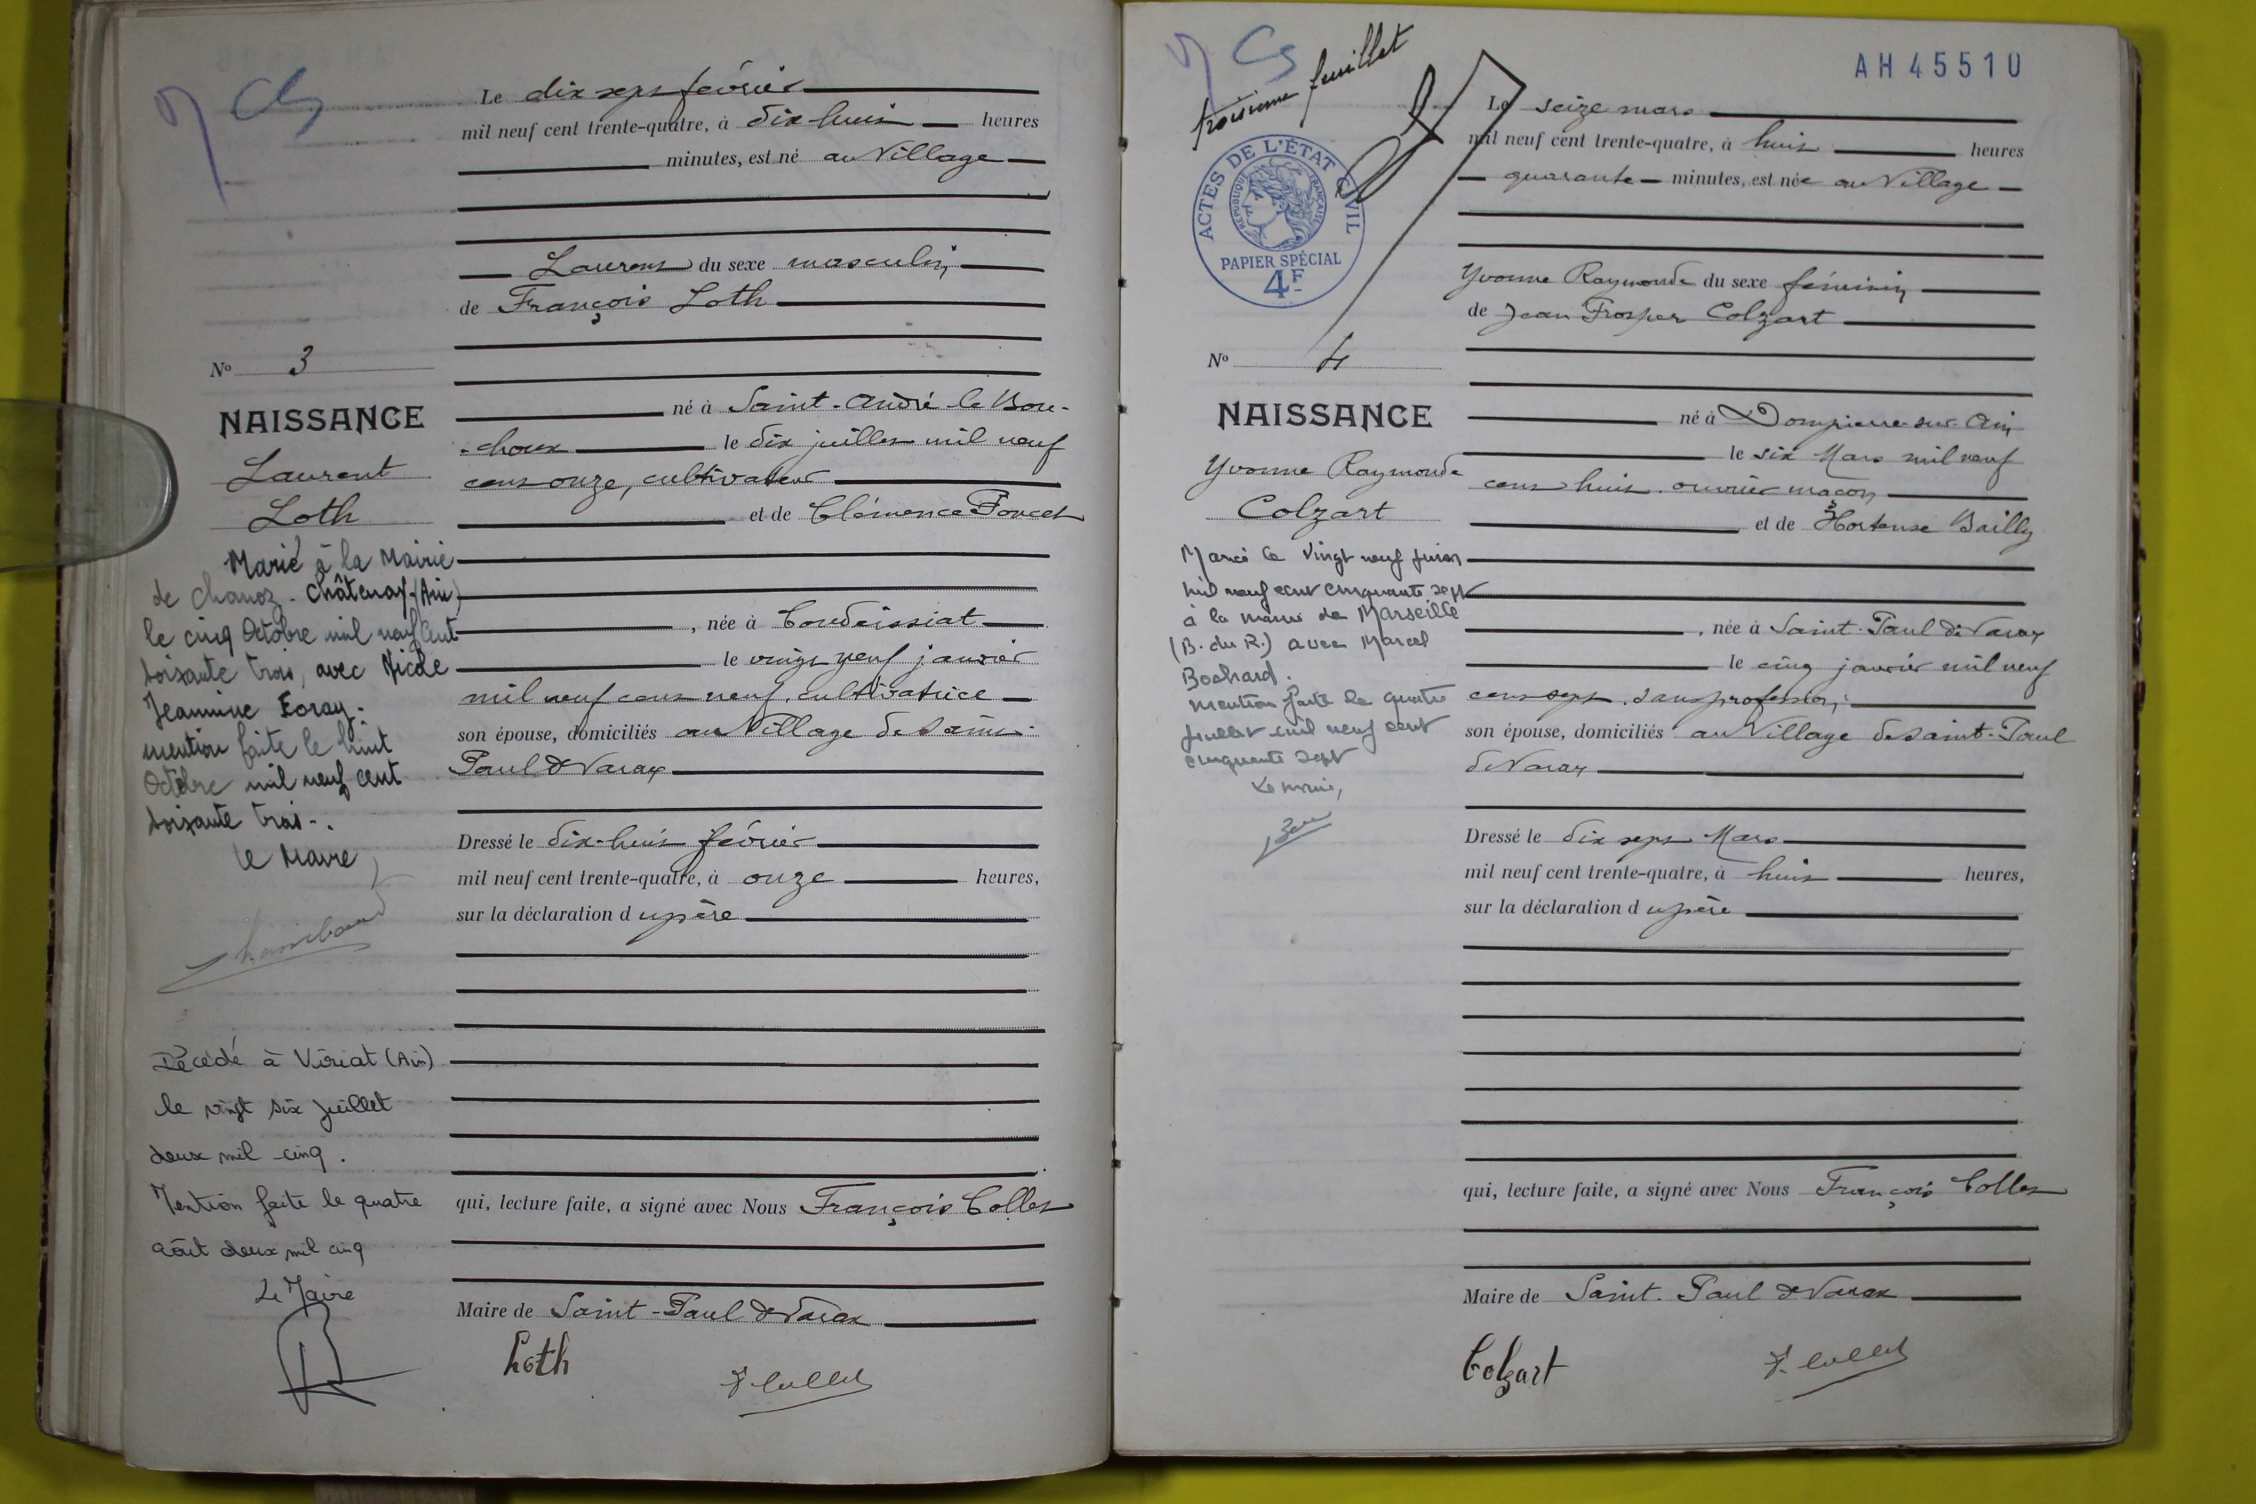 Le dix sept février
mil neuf cent trente-quatre, à dix-huit heures
minutes, est né au Village
Laurent du sexe masculin
de François Loth
No 3
NAISSANCE
Laurent
Loth
né à Saint-André-le Bou-
-choux le dix juillet mil neuf
cent onze, cultivateur
et de Clémence Poncet
, née à Condeissiat
le vingt neuf janvier
mil neuf cent neuf, cultivatrice
son épouse, domiciliés au Village de Saint-
Paul de Varax
Dressé le dix-huit février
mil neuf cent trente-quatre, à onze heures,
sur la déclaration du père
qui, lecture faite, a signé avec Nous François Collet
Maire de Saint-Paul de Varax
Loth
F. Collet
Marié à la Mairie
de Chanoz-Châtenay (Ain)
le cinq Octobre mil neuf cent
soixante trois, avec Nicole
Jeannine Foray.
mention faite le huit
Octobre mil neuf cent
soixante trois-.
le Maire
Décédé à Viriat (Ain)
le vingt six juillet
deux mil cinq.
Mention faite le quatre
août deux mil cinq
Le Maire
troisième feuillet
AH 45510
ACTES DE L'ÉTAT CIVIL
RÉPUBLIQUE FRANÇAISE
PAPIER SPÉCIAL
4F
Le seize mars
mil neuf cent trente-quatre, à huit heures
quarante minutes, est née au Village
Yvonne Raymonde du sexe féminin
de Jean Prosper Colzart
No 4
NAISSANCE
Yvonne Raymonde
Colzart
né à Dompierre-sur-Ain
le six Mars mil neuf
cent huit, ouvrier maçon
et de Hortense Bailly
, née à Saint-Paul de Varax
le cinq janvier mil neuf
cent sept, sans profession,
son épouse, domiciliés au Village de Saint-Paul
de Varax
Dressé le dix sept Mars
mil neuf cent trente-quatre, à huit heures,
sur la déclaration du père
qui, lecture faite, a signé avec Nous François Collet
Maire de Saint-Paul de Varax
Colzart
F. Collet
Mariée le vingt neuf juin
mil neuf cent cinquante sept
à la mairie de Marseille
(B. du R.) avec Marcel
mention faite le quatre
juillet mil neuf cent
cinquante sept
Le maire,